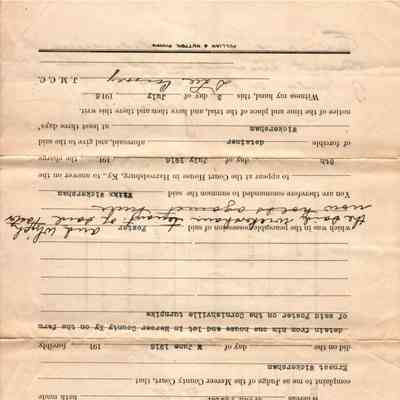 hath made
complaint to me as Judge of the Mercer County Court, that
Ernest Wickersham
did on the day of June 1916 191 forcibly
detain from him one house and lot in Mercer County Ky on the farm
of said Foster on the Cornishville turnpike
which was in the peaceable possession of said Foster and which
the said Wickersham tenant of said Foster
now holds against him
You are therefore commanded to summon the said Wickersham
to appear at the Court House in Harrodsburg, Ky., to answer the
8th day of July 1916 191 the charge
forcible detainer aforesaid, and give to the said
Wickersham at least three days'
notice of the time and place of the trial, and have then there this writ.
Witness my hand, this day of July 1916
Lee J. M. C. C.